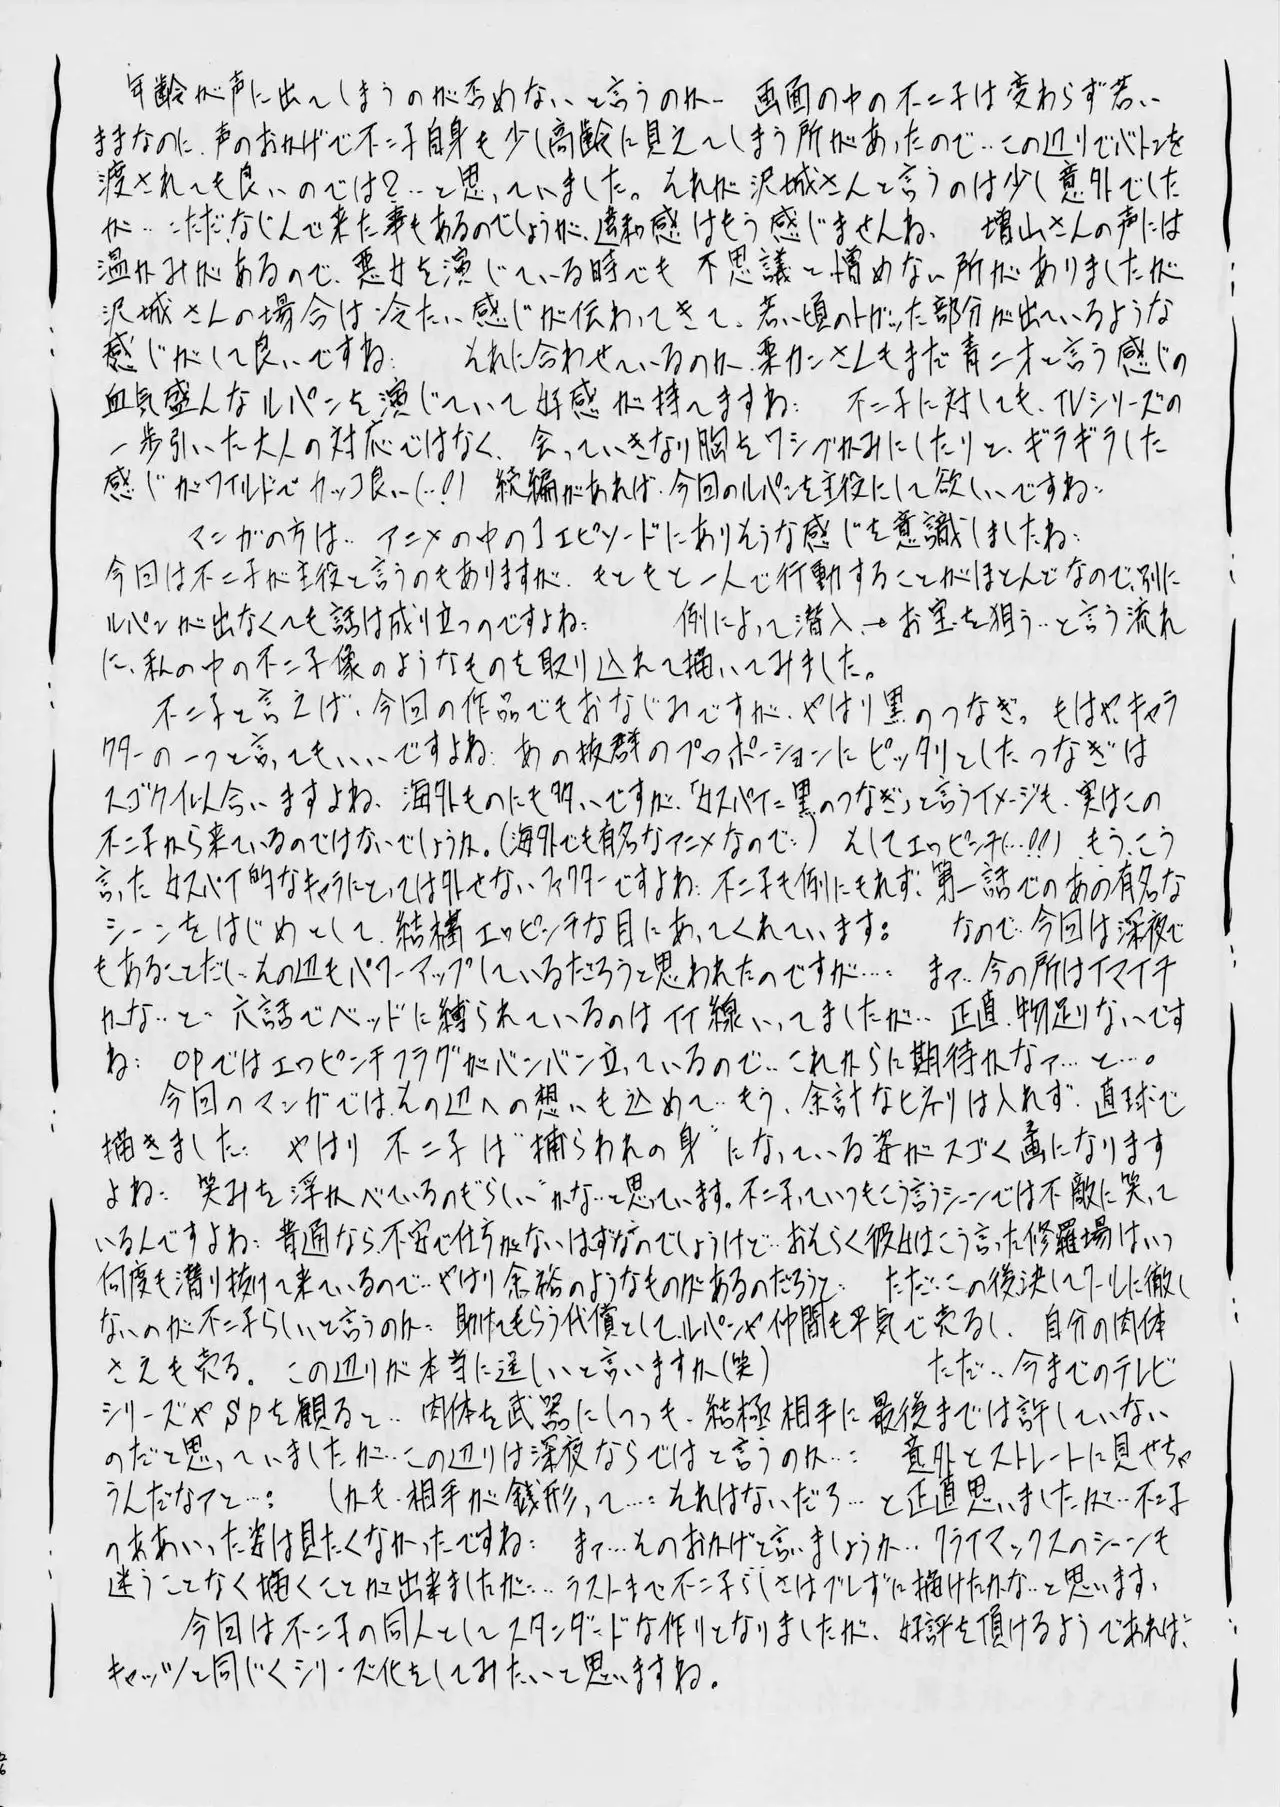 年齢が声に出てしまうのが否めないと言うのか… 画面の中の不二子は変わらず若い
ままなのに、声のおかげで不二子自身も少し高齢に見えてしまう所があったので…この辺りでバトンを
渡されても良いのでは?…と思っていました。それが沢城さんと言うのは少し意外でした
が… ただ、なじんで来た事もあるのでしょうが、違和感はもう感じませんね、 増山さんの声には
温かみがあるので、悪女を演じている時でも 不思議と憎めない所がありましたが
沢城さんの場合は冷たい感じが伝わってきて、若い頃のトガッた部分が出ているような
感じがして良いですね: それに合わせているのか、栗カンさんもまだ青二才と言う感じの
血気盛んなルパンを演じていて好感が持てますね: 不二子に対しても、TVシリーズの
一歩引いた大人の対応ではなく、会っていきなり胸をワシヅかみにしたりと、ギラギラした
感じがワイルドでカッコ良い(…!) 続編があれば、今回のルパンを主役にして欲しいですね…
マンガの方は… アニメの中の1エピソードにありそうな感じを意識しましたね:
今回は不二子が主役と言うのもありますが、もともと一人で行動することがほとんどなので、別に
ルパンが出なくても話は成り立つのですよね: 例によって潜入→お宝を狙う…と言う流れ
に、私の中の不二子像のようなものを取り込れて描いてみました。
不二子と言えば、今回の作品でもおなじみですが、やはり黒のつなぎっ もはや、キャラ
クターの一つと言ってもいいですよね: あの抜群のプロポーションにピッタリとしたつなぎは
スゴク似合いますよね、海外ものにも多いですが、「女スパイ=黒のつなぎ」と言うイメージも、実はこの
不二子から来ているのではないでしょうか。(海外でも有名なアニメなので…) そしてエロピンチ(…!!)、もう、こう
言った女スパイ的なキャラにとっては外せないファクターですよね: 不二子も例にもれず、第一話でのあの有名な
シーンをはじめとして、結構エロピンチな目にあってくれています: なので…今回は深夜で
もあることだし…その辺もパワーアップしているだろうと思われたのですが…: まァ…今の所はイマイチ
かな…と… 六話でベッドに縛られているのはイイ線いってましたが… 正直、物足りないです
ね: OPではエロピンチフラグがバンバン立っているので…これからに期待かなァ…と…。
今回のマンガでは、その辺への想いも込めて…もう、余計なヒネリは入れず、直球で
描きました: やはり 不二子は"捕らわれの身"になっている姿がスゴく画になります
よね: 笑みを浮かべているのも"らしい"かな…と思っています。不二子っていつもこう言うシーンでは不敵に笑って
いるんですよね: 普通なら、不安で仕方がないはずなのでしょうけど…おそらく彼女はこう言った修羅場はいつ
何度も潜り抜けて来ているので…やはり余裕のようなものがあるのだろうと: ただ…この後決してクールに徹し
ないのが不二子らしいと言うのか: 助けてもらう代償として、ルパンや仲間も平気で売るし、自分の肉体
さえも売る。この辺りが本当に逞しいと言いますか(笑) ただ…今までのテレビ
シリーズやSPを観ると… 肉体を武器にしつつも、結極相手に最後までは許していない
のだと思っていましたが…この辺りは深夜ならではと言うのか…: 意外とストレートに見せちゃ
うんだなァと…: (しかも、相手が銭形って…: それはないだろ…と正直思いましたが…不二子
のああいった姿は見たくなかったですね: まァ…そのおかげと言いましょうか… クライマックスのシーンも
迷うことなく描くことが出来ましたが… ラストまで不二子らしさはブレずに描けたかな…と思います、
今回は不二子の同人としてスタンダードな作りとなりましたが、好評を頂けるようであれば、
キャッツと同じくシリーズ化をしてみたいと思いますね。